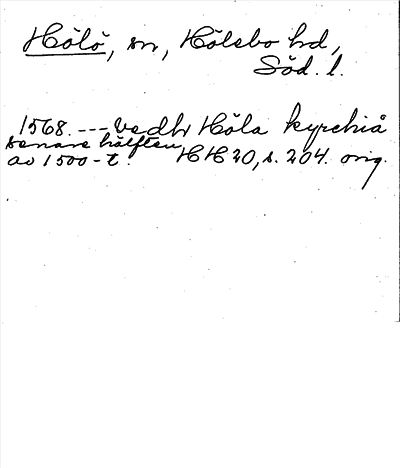 Hölö, sn, Hölebo hd,
Söd. l.
1568. --- Vedh Höla kyrchiä
senare hälften
av 1500-t. HH 20, s. 204. orig.